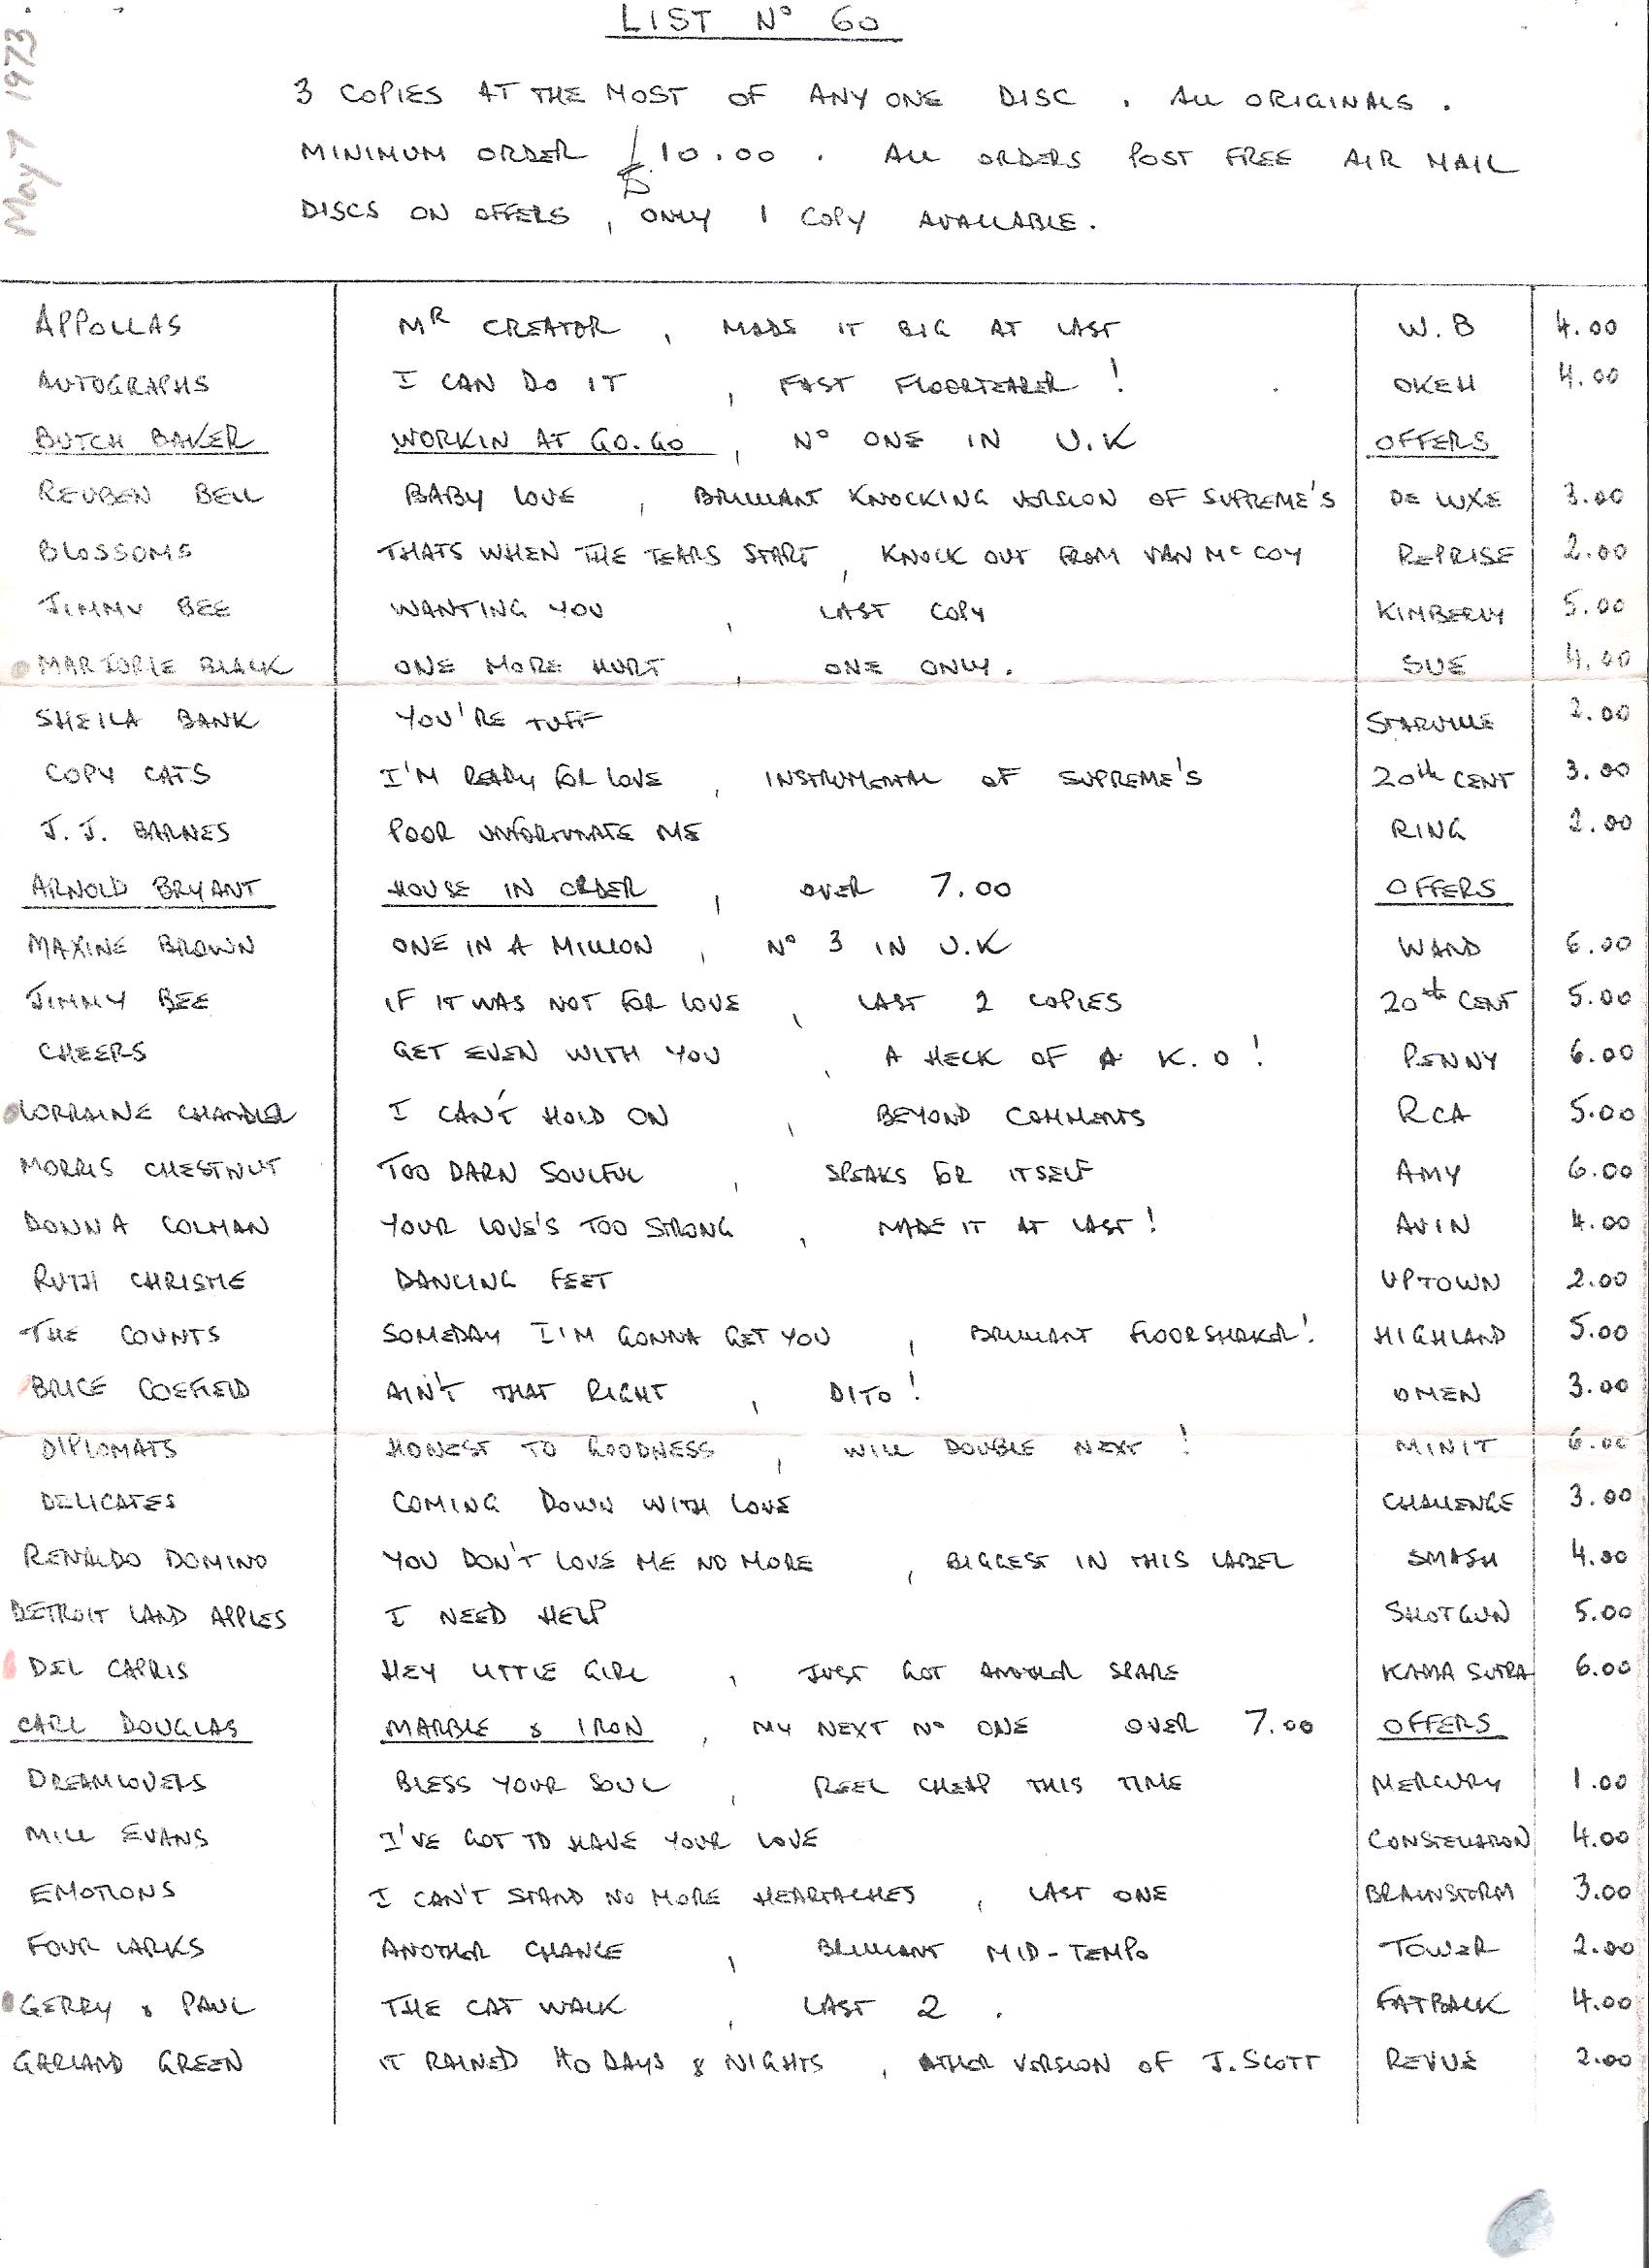 May 7 1973.
LIST Nº 60
3 COPIES AT THE MOST OF ANY ONE DISC . ALL ORIGINALS .
MINIMUM ORDER £10.00 . ALL ORDERS POST FREE AIR MAIL
DISCS ON OFFERS , ONLY 1 COPY AVAILABLE .
APPOLLAS MR CREATOR , MADE IT BIG AT LAST W.B 4.00
AUTOGRAPHS I CAN DO IT , FAST FLOORTEARER ! OKEH 4.00
BUTCH BAKER WORKIN AT GO.GO , Nº ONE IN U.K OFFERS
REUBEN BELL BABY LOVE , BRILLIANT KNOCKING VERSION OF SUPREME'S DE LUXE 3.00
BLOSSOMS THATS WHEN THE TEARS START , KNOCK OUT FROM VAN Mc COY REPRISE 2.00
JIMMY BEE WANTING YOU , LAST COPY KIMBERLY 5.00
MARJORIE BLACK ONE MORE HURT , ONE ONLY . SUE 4.00
SHEILA BANK YOU'RE TUFF STARVILLE 2.00
COPY CATS I'M READY FOR LOVE , INSTRUMENTAL OF SUPREME'S 20th CENT 3.00
J. J. BARNES POOR UNFORTUNATE ME RING 2.00
ARNOLD BRYANT HOUSE IN ORDER , OVER 7.00 OFFERS
MAXINE BROWN ONE IN A MILLION , Nº 3 IN U.K WAND 6.00
JIMMY BEE IF IT WAS NOT FOR LOVE , LAST 2 COPIES 20th CENT 5.00
CHEERS GET EVEN WITH YOU , A HECK OF A K.O ! PENNY 6.00
LORRAINE CHANDLER I CAN'T HOLD ON , BEYOND COMMENTS RCA 5.00
MORRIS CHESTNUT TOO DARN SOULFUL , SPEAKS FOR ITSELF AMY 6.00
DONNA COLMAN YOUR LOVE'S TOO STRONG , MADE IT AT LAST ! AVIN 4.00
RUTH CHRISTIE DANCING FEET UPTOWN 2.00
THE COUNTS SOMEDAY I'M GONNA GET YOU , BRILLIANT FLOORSHAKER ! HIGHLAND 5.00
BRICE COEFIELD AIN'T THAT RIGHT , DITO ! OMEN 3.00
DIPLOMATS HONEST TO GOODNESS , WILL DOUBLE NEXT ! MINIT 6.00
DELICATES COMING DOWN WITH LOVE CHALLENGE 3.00
RENALDO DOMINO YOU DON'T LOVE ME NO MORE , BIGGEST IN THIS LABEL SMASH 4.00
DETROIT LAND APPLES I NEED HELP SHOTGUN 5.00
DEL CAPRIS HEY LITTLE GIRL , JUST GOT ANOTHER SPARE KAMA SUTRA 6.00
CARL DOUGLAS MARBLE & IRON , MY NEXT Nº ONE OVER 7.00 OFFERS
DREAMLOVERS BLESS YOUR SOUL , REEL CHEAP THIS TIME MERCURY 1.00
MILL EVANS I'VE GOT TO HAVE YOUR LOVE CONSTELLATION 4.00
EMOTIONS I CAN'T STAND NO MORE HEARTACHES , LAST ONE BRAINSTORM 3.00
FOUR LARKS ANOTHER CHANCE , BRILLIANT MID-TEMPO TOWER 2.00
GERRY & PAUL THE CAT WALK , LAST 2 . FATBACK 4.00
GARLAND GREEN IT RAINED 40 DAYS & NIGHTS , OTHER VERSION OF J. SCOTT REVUE 2.00